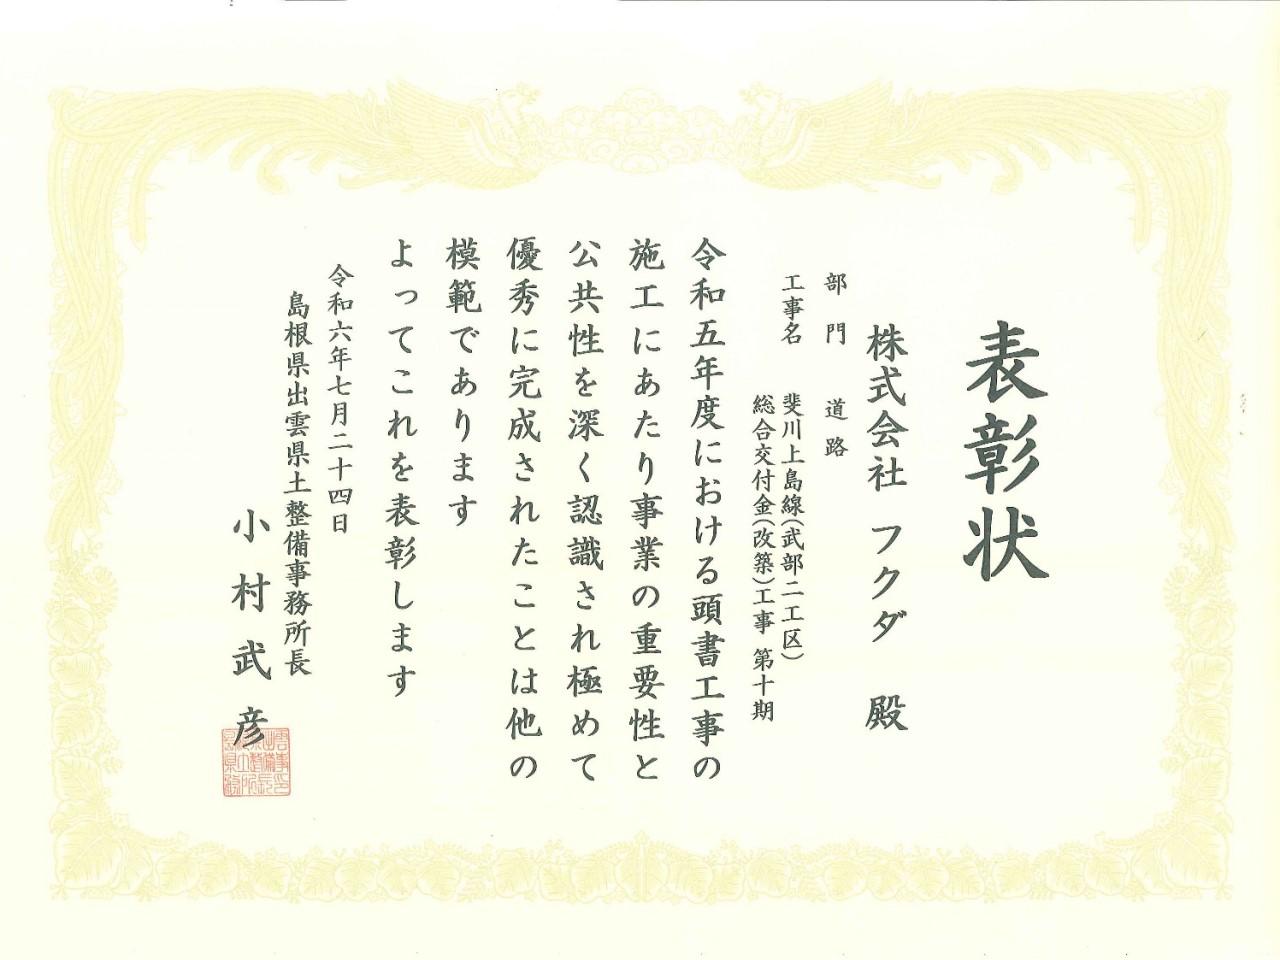 表彰状
株式会社 フクダ 殿
部門 道路
工事名 斐川上島線(武部二工区)
総合交付金(改築)工事 第十期
令和五年度における頭書工事の
施工にあたり事業の重要性と
公共性を深く認識され極めて
優秀に完成されたことは他の
模範であります
よってこれを表彰します
令和六年七月二十四日
島根県出雲県土整備事務所長
小村武彦